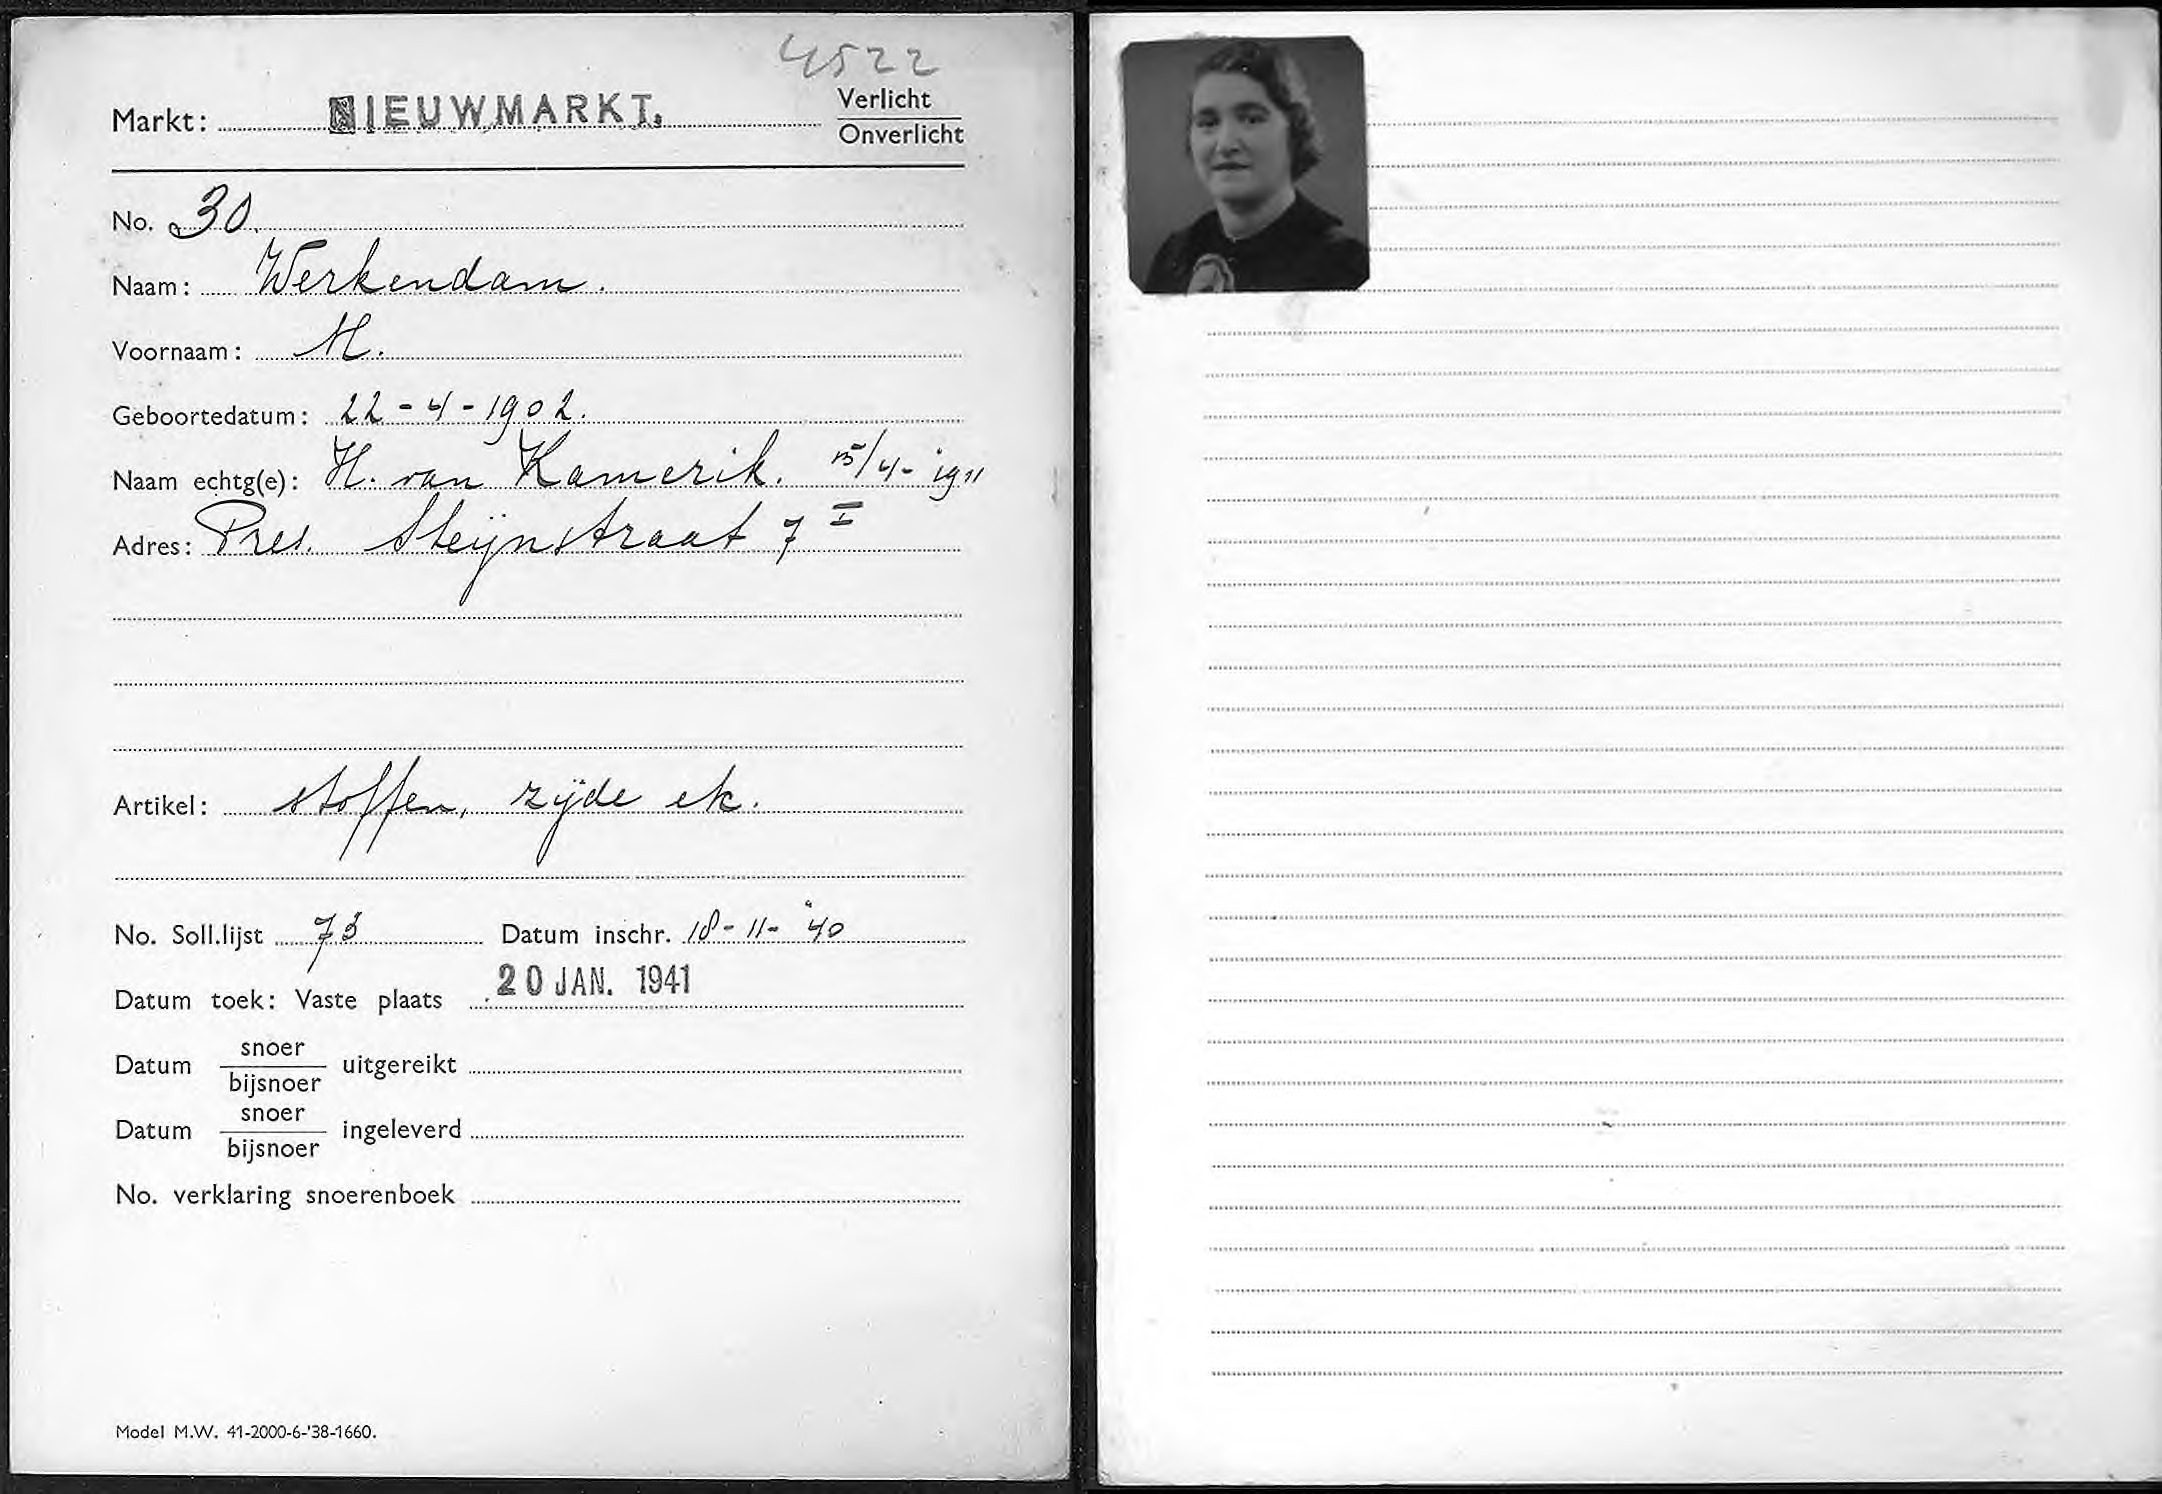 4522
Markt: NIEUWMARKT. Verlicht
Onverlicht
No. 30.
Naam: Werkendam.
Voornaam: M.
Geboortedatum: 22-4-1902.
Naam echtg(e): H. van Kamerik. 15/4-'11
Adres: Pres. Steijnstraat 7 I
Artikel: stoffen, zijde etc.
No. Soll.lijst 73 Datum inschr. 18-11-'40
Datum toek: Vaste plaats 20 JAN. 1941
Datum snoer/bijsnoer uitgereikt
Datum snoer/bijsnoer ingeleverd
No. verklaring snoerenboek
Model M.W. 41-2000-6-'38-1660.